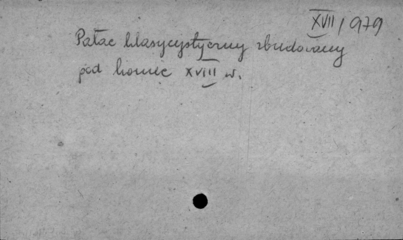 XVII/979
Pałac klasycystyczny zbudowany
pod koniec XVIII w.